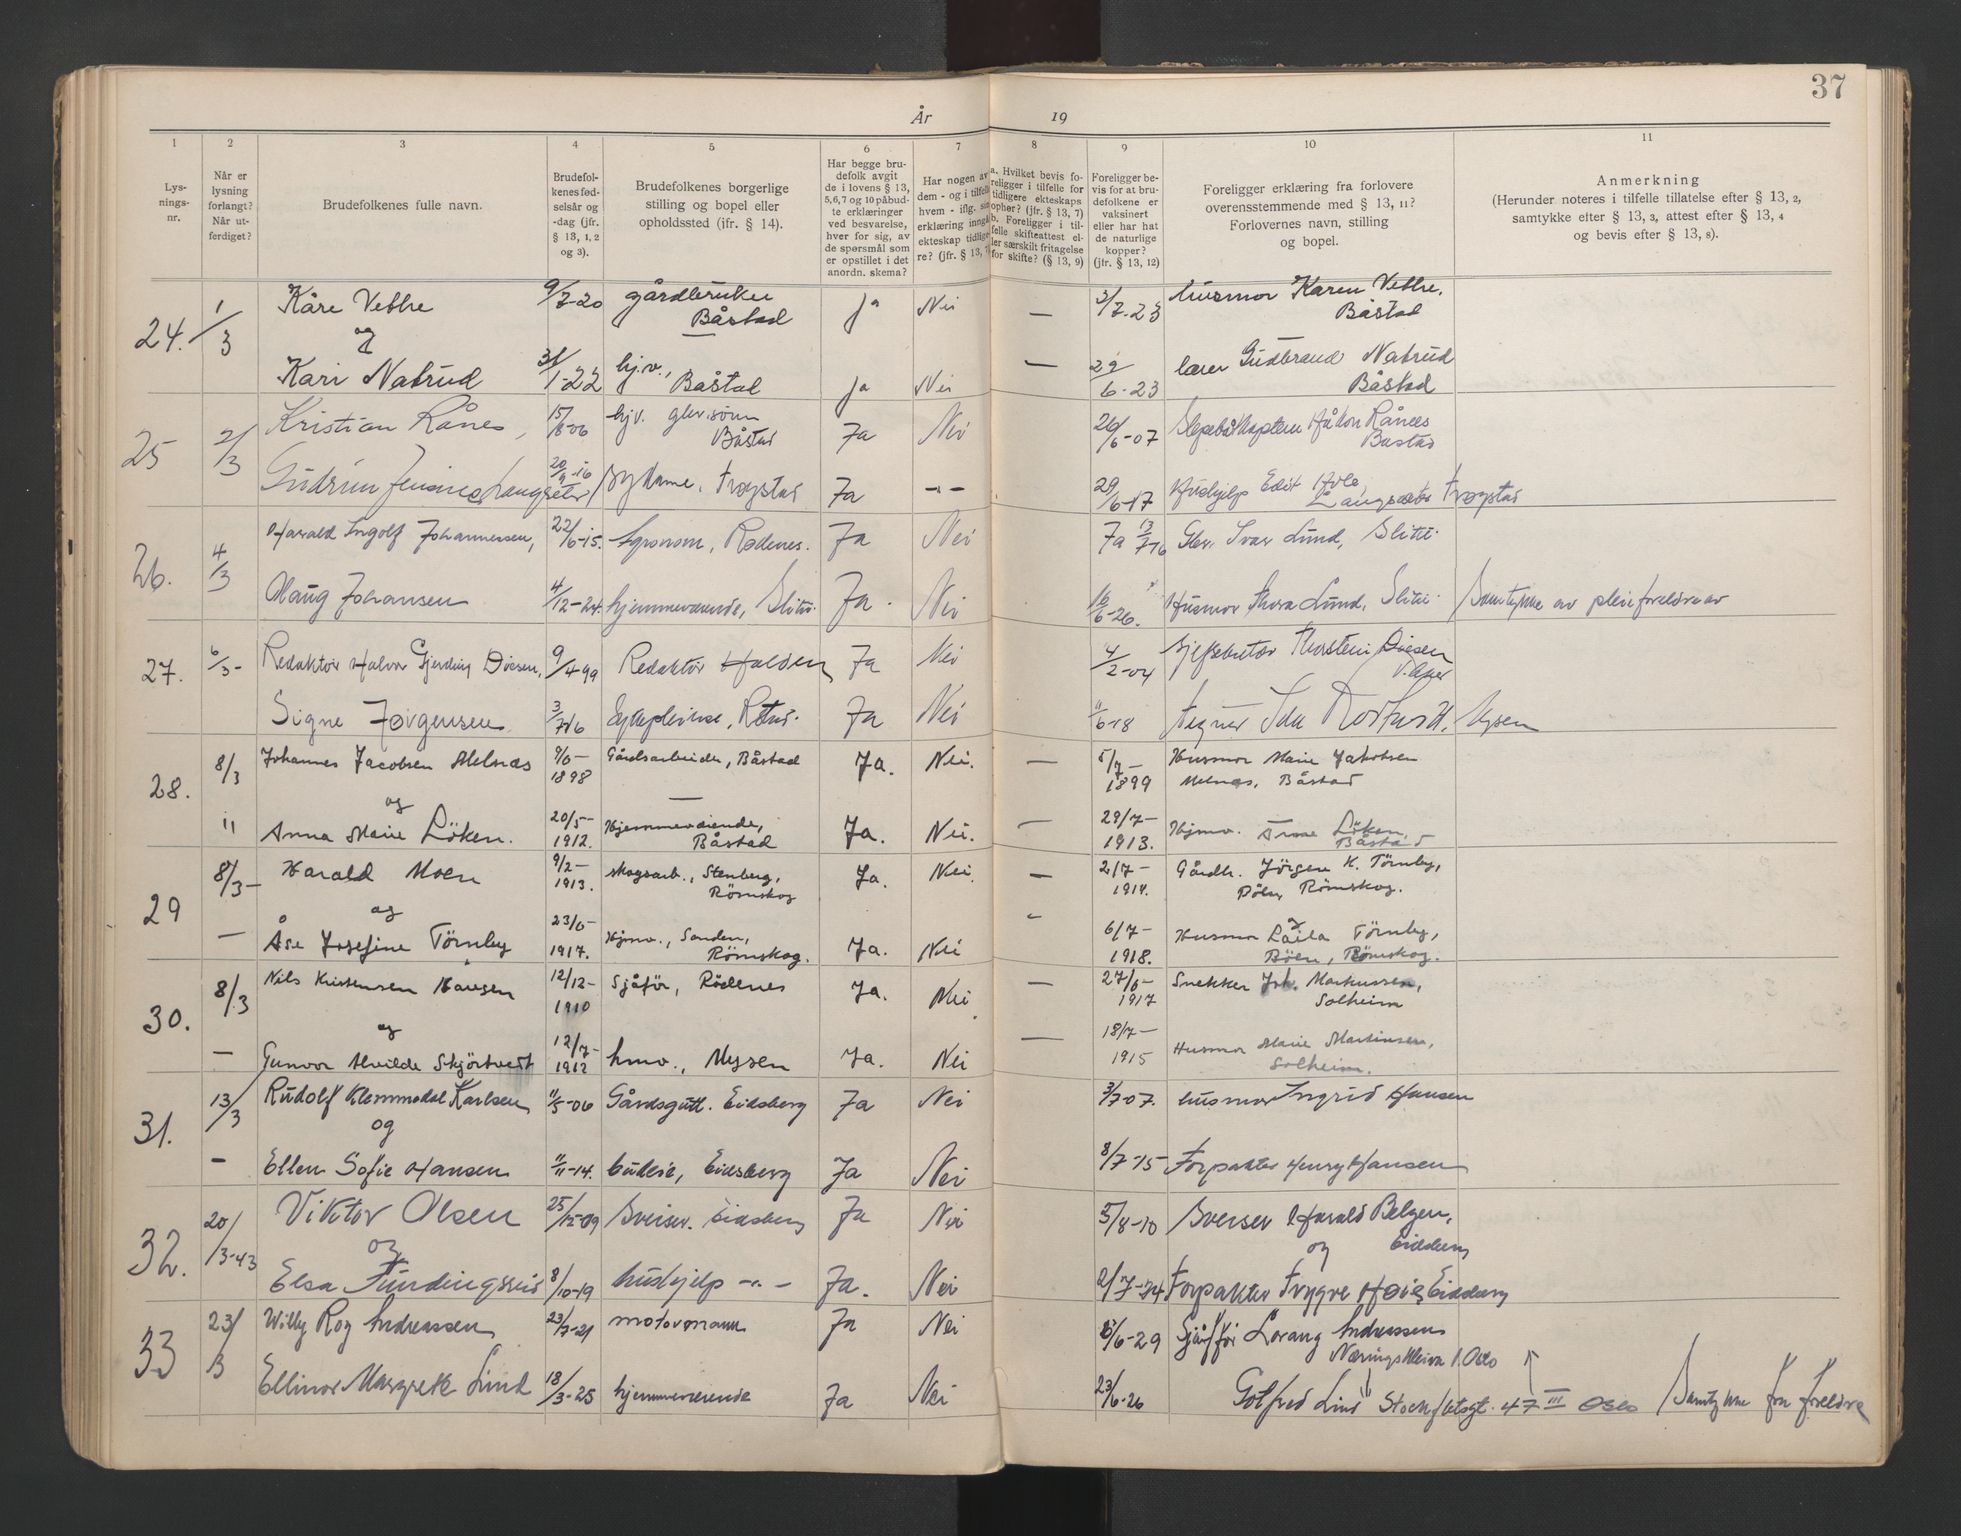 37
År 19
1 2 3 4 5 6 7 8 9 10 11
Lysnings-nr.
Når er lysning forlangt? Når utferdiget?
Brudefolkenes fulle navn.
Brudefolkenes fødselsår og -dag (jfr. § 13, 1, 2 og 3).
Brudefolkenes borgerlige stilling og bopel eller opholdssted (jfr. § 14).
Har begge brudefolk avgit de i lovens § 13, 5, 6, 7 og 10 påbudte erklæringer ved besvarelse, hver for sig, av de spørsmål som er opstillet i det anordn. skema?
Har nogen av dem - og i tilfelle hvem - iflg. sin erklæring inngå ekteskap tidligere? (jfr. § 13, 7)
a. Hvilket bevis foreligger i tilfelle for tidligere ekteskaps ophør? (jfr. § 13, 7)
b. Foreligger i tilfelle skifteattest eller særskilt fritagelse for skifte? (§ 13, 9)
Foreligger bevis for at brudefolkene er vaksinert eller har hat de naturlige kopper? (jfr. § 13, 12)
Foreligger erklæring fra forlovere overensstemmende med § 13, 11? Forlovernes navn, stilling og bopel.
Anmerkning
(Herunder noteres i tilfelle tillatelse efter § 13, 2, samtykke efter § 13, 3, attest efter § 13, 4 og bevis efter § 13, 8).
24. 1/3 Kåre Vebbe 9/7-20 gårdbruker Båstad ja Nei — 3/7-23 husmor Karen Vebbe, Båstad
og
Kari Natrud 31/1-22 hj.v., Båstad ja Nei — 29/6-23 lærer Gudbrand Natrud Båstad
25 2/3 Kristian Rånes, 15/8-06 hjv. gbr.sønn Båstad Ja Nei 26/6-07 Slepebåtkaptein Håkon Rånes Båstad
Gudrun Jensine Langseter 20/9-16 Sydame, Trøgstad Ja -"- 29/6-17 Hushjelp Edit Hole, Langsæter Trøgstad
26. 4/3 Harald Ingolf Johannessen, 22/6-15. Agronom, Rødenes. Ja Nei Ja 13/7-16 Gbr. Ivar Lund, Slitu.
Maug Johansen 4/12-24. hjemmeværende, Slitu. Ja. Nei 16/6-26. Husmor Thora Lund, Slitu. Samtykke av pleieforeldre av
27. 6/3- Redaktør Halvor Gjerding Diesen, 9/4-99 Redaktør Halden Ja Nei 4/2-04 Thorstein Diesen V. Aker
Signe Jørgensen 3/7-16 Sykepleierske, Ja Nei 11/6-18 Ida Mysen
28. 8/3 Johannes Jacobsen Melnæs 9/6-1898 Gårdsarbeider, Båstad Ja. Nei. — 5/7-1899 Husmor Marie Jakobsen Melnæs, Båstad
og
" Anna Marie Löken. 20/5-1912. Hjemmeværende, Båstad Ja. Nei. — 29/7-1913. Hjmv. Löken, Båstad
29 8/3- Harald Moen 9/2-1913. skogsarb., Stenberg, Römskog Ja. Nei. — 2/7-1914. Gårdbr. Jörgen K. Törnby, Römskog.
og
— Åse Josefine Törnby 23/6-1917. Hjmv., Sanden, Römskog. Ja. Nei - 6/7-1918. Husmor Laila Törnby, Bölen, Römskog.
30. 8/3 Nils Kristensen Hansen 12/12-1910 Sjåför, Rödenes Ja. Nei — 27/6-1917 Snekker Joh. Markussen, Solheim
og
— Gunvor Alvilde Skjörtvedt 12/7-1912 hmv., Mysen Ja. Nei — 18/7-1915 Husmor Marie Martinsen, Solheim.
31. 13/3 Rudolf Klemmedal Karlsen 11/5-06 Gårdsgutt. Eidsberg Ja Nei 3/7-07. husmor Ingrid Hansen
og
- Ellen Sofie Hansen 11/11-14. budeie, Eidsberg Ja Nei 8/7-15 Forpakter Henry Hansen
32. 20/3-43 Viktor Olsen 25/12-09 Sveiser. Eidsberg Ja Nei 5/8-10 Sveiser Harald Belgen, Eidsberg
og og
Elsa Fundingsrud 8/10-19 hushjelp -"- Ja. Nei 2/7-24 Forpakter Trygve Høie, Eidsberg
33 23/3 Willy Roy Andreassen 23/7-21 motormann Ja Nei 8/6-29 Sjåffør Lorang Andreassen Næringskleiva 1. Oslo
Ellinor Margrete Lund 18/3-25 hjemmeværende Ja Nei 23/6-26 Gotfred Lund Stockfletsgt. 47 III Oslo Samtykke fra foreldre